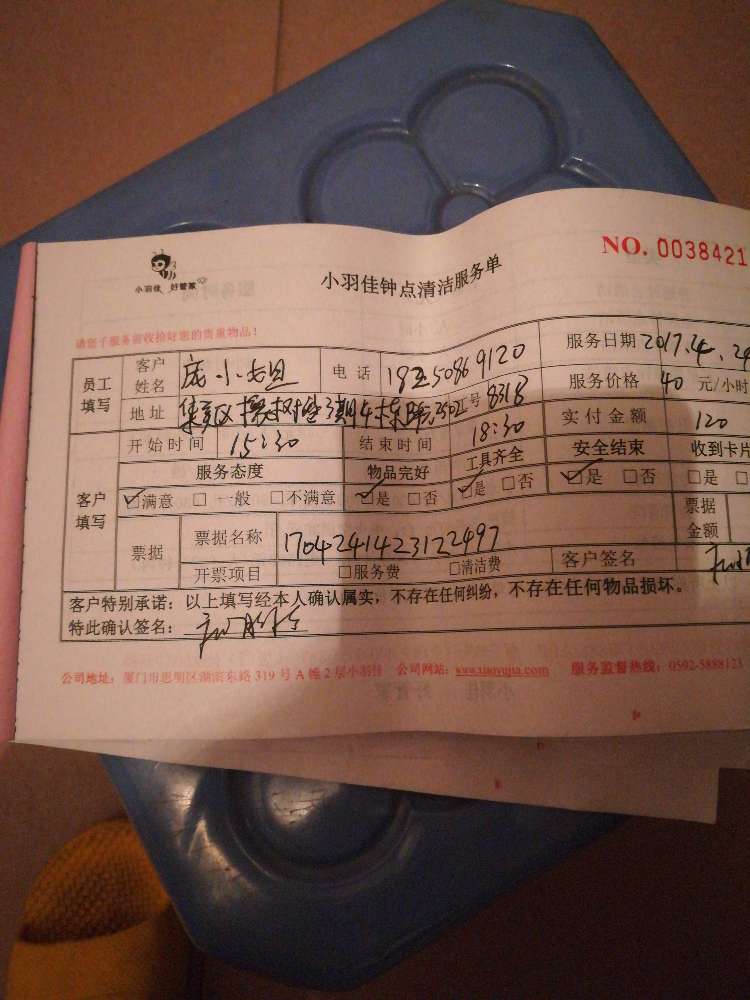 小羽佳 好管家
小羽佳钟点清洁服务单
NO. 0038421
请您于服务前收拾好您的贵重物品！
员工填写 客户姓名 庞小姐 电话 18250869120 服务日期 2017.4.24
地址 集美区 3期4栋 工号 8318 服务价格 40 元/小时
开始时间 15:30 结束时间 18:30 实付金额 120
客户填写 服务态度 物品完好 工具齐全 安全结束 收到卡片
☑满意 □一般 □不满意 ☑是 □否 ☑是 □否 ☑是 □否 □是 □
票据 票据名称 1704241423122497 票据金额
开票项目 □服务费 □清洁费 客户签名
客户特别承诺：以上填写经本人确认属实，不存在任何纠纷，不存在任何物品损坏。
特此确认签名：
公司地址：厦门市思明区湖滨东路 319 号 A 幢 2 层小羽佳 公司网站：www.xiaoyujia.com 服务监督热线：0592-5888121